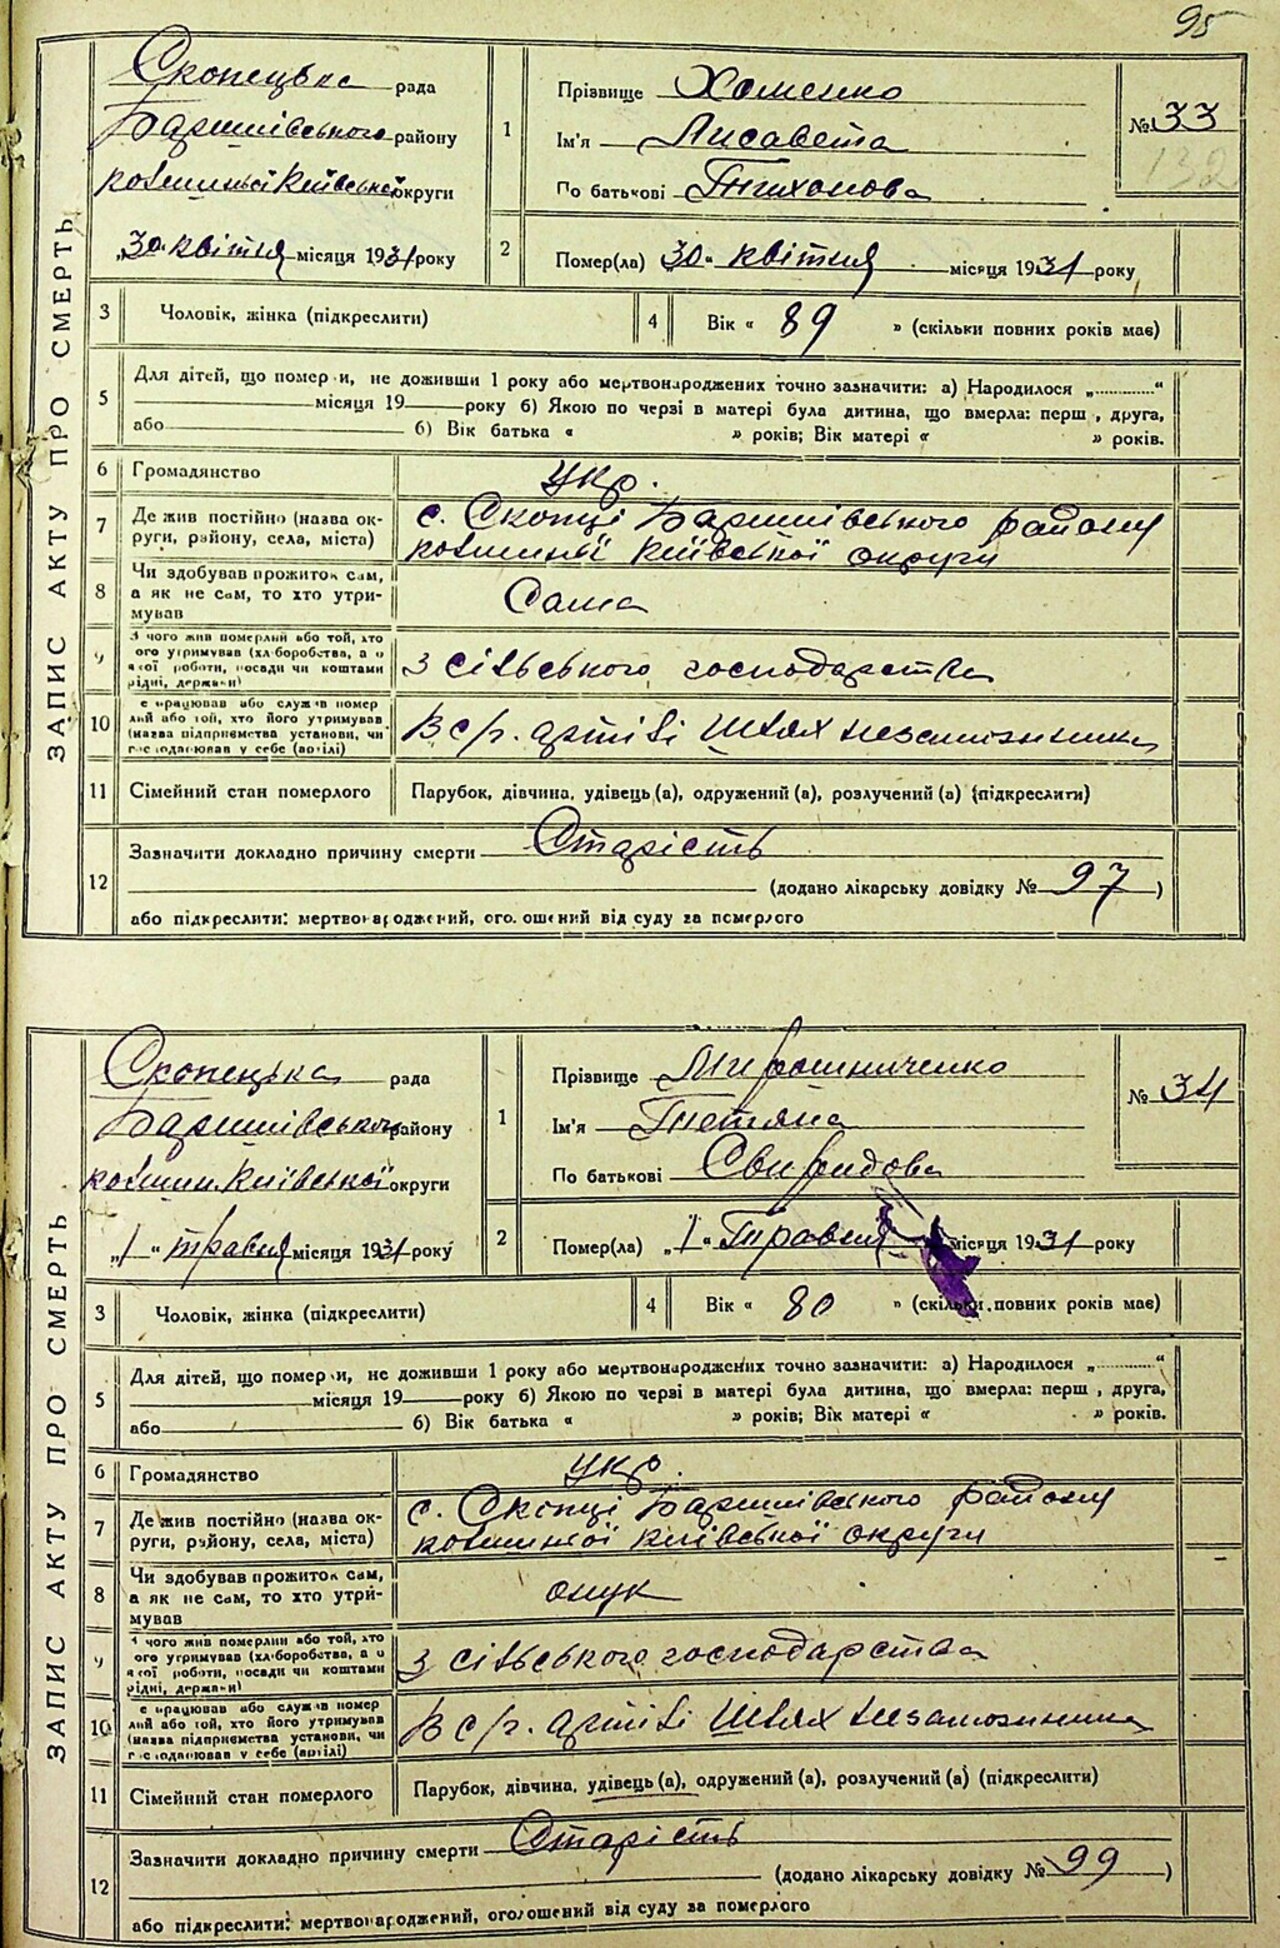 95
ЗАПИС АКТУ ПРО СМЕРТЬ
Скопецька рада
Баришівського району
колишньої Київської округи
„30“ квітня місяця 1931 року
1
Прізвище Хоменко
Ім'я Лисавета
По батькові Тихонова
№ 33
132
2
Помер(ла) 30“ квітня місяця 1931 року
3 Чоловік, жінка (підкреслити)
4 Вік « 89 » (скільки повних років має)
5
Для дітей, що помер и, не доживши 1 року або мертвонароджених точно зазначити: а) Народилося „............“
місяця 19 року б) Якою по черзі в матері була дитина, що вмерла: перш , друга,
або б) Вік батька « » років; Вік матері « » років.
6 Громадянство укр.
7
Де жив постійно (назва ок-
руги, району, села, міста)
с. Скопці Баришівського району
колишньої Київської округи
8
Чи здобував прожиток сам,
а як не сам, то хто утри-
мував
Сама
9
З чого жив померлий або той, хто
ого утримував (хліборобства, а о
якої роботи, посади чи коштами
рідні, держави)
З сільського господарства
10
е працював або служив помер
лий або той, хто його утримував
(назва підприємства установи, чи
г с одарював у себе (артілі)
В с/г. артілі Шлях незаможника
11 Сімейний стан померлого Парубок, дівчина, удівець (а), одружений (а), розлучений (а) (підкреслити)
12
Зазначити докладно причину смерти Старість
(додано лікарську довідку № 97 )
або підкреслити: мертвонароджений, оголошений від суду за померлого
ЗАПИС АКТУ ПРО СМЕРТЬ
Скопецька рада
Баришівського району
колишн. Київської округи
„1“ травня місяця 1931 року
1
Прізвище Мирошниченко
Ім'я Тетяна
По батькові Свиридова
№ 34
2
Помер(ла) „1“ Травня місяця 1931 року
3 Чоловік, жінка (підкреслити)
4 Вік « 80 » (скільки повних років має)
5
Для дітей, що помер и, не доживши 1 року або мертвонароджених точно зазначити: а) Народилося „............“
місяця 19 року б) Якою по черзі в матері була дитина, що вмерла: перш , друга,
або б) Вік батька « » років; Вік матері « » років.
6 Громадянство укр.
7
Де жив постійно (назва ок-
руги, району, села, міста)
с. Скопці Баришівського району
колишньої Київської округи
8
Чи здобував прожиток сам,
а як не сам, то хто утри-
мував
онук
9
чого жив померлий або той, хто
ого утримував (хліборобства, а о
якої роботи, посади чи коштами
рідні, держави)
З сільського господарства
10
е працював або служив помер
лий або той, хто його утримував
(назва підприємства установи, чи
г с одарював у себе (артілі)
В с/г. артілі Шлях незаможника
11 Сімейний стан померлого Парубок, дівчина, удівець (а), одружений (а), розлучений (а) (підкреслити)
12
Зазначити докладно причину смерти Старість
(додано лікарську довідку № 99 )
або підкреслити: мертвонароджений, оголошений від суду за померлого